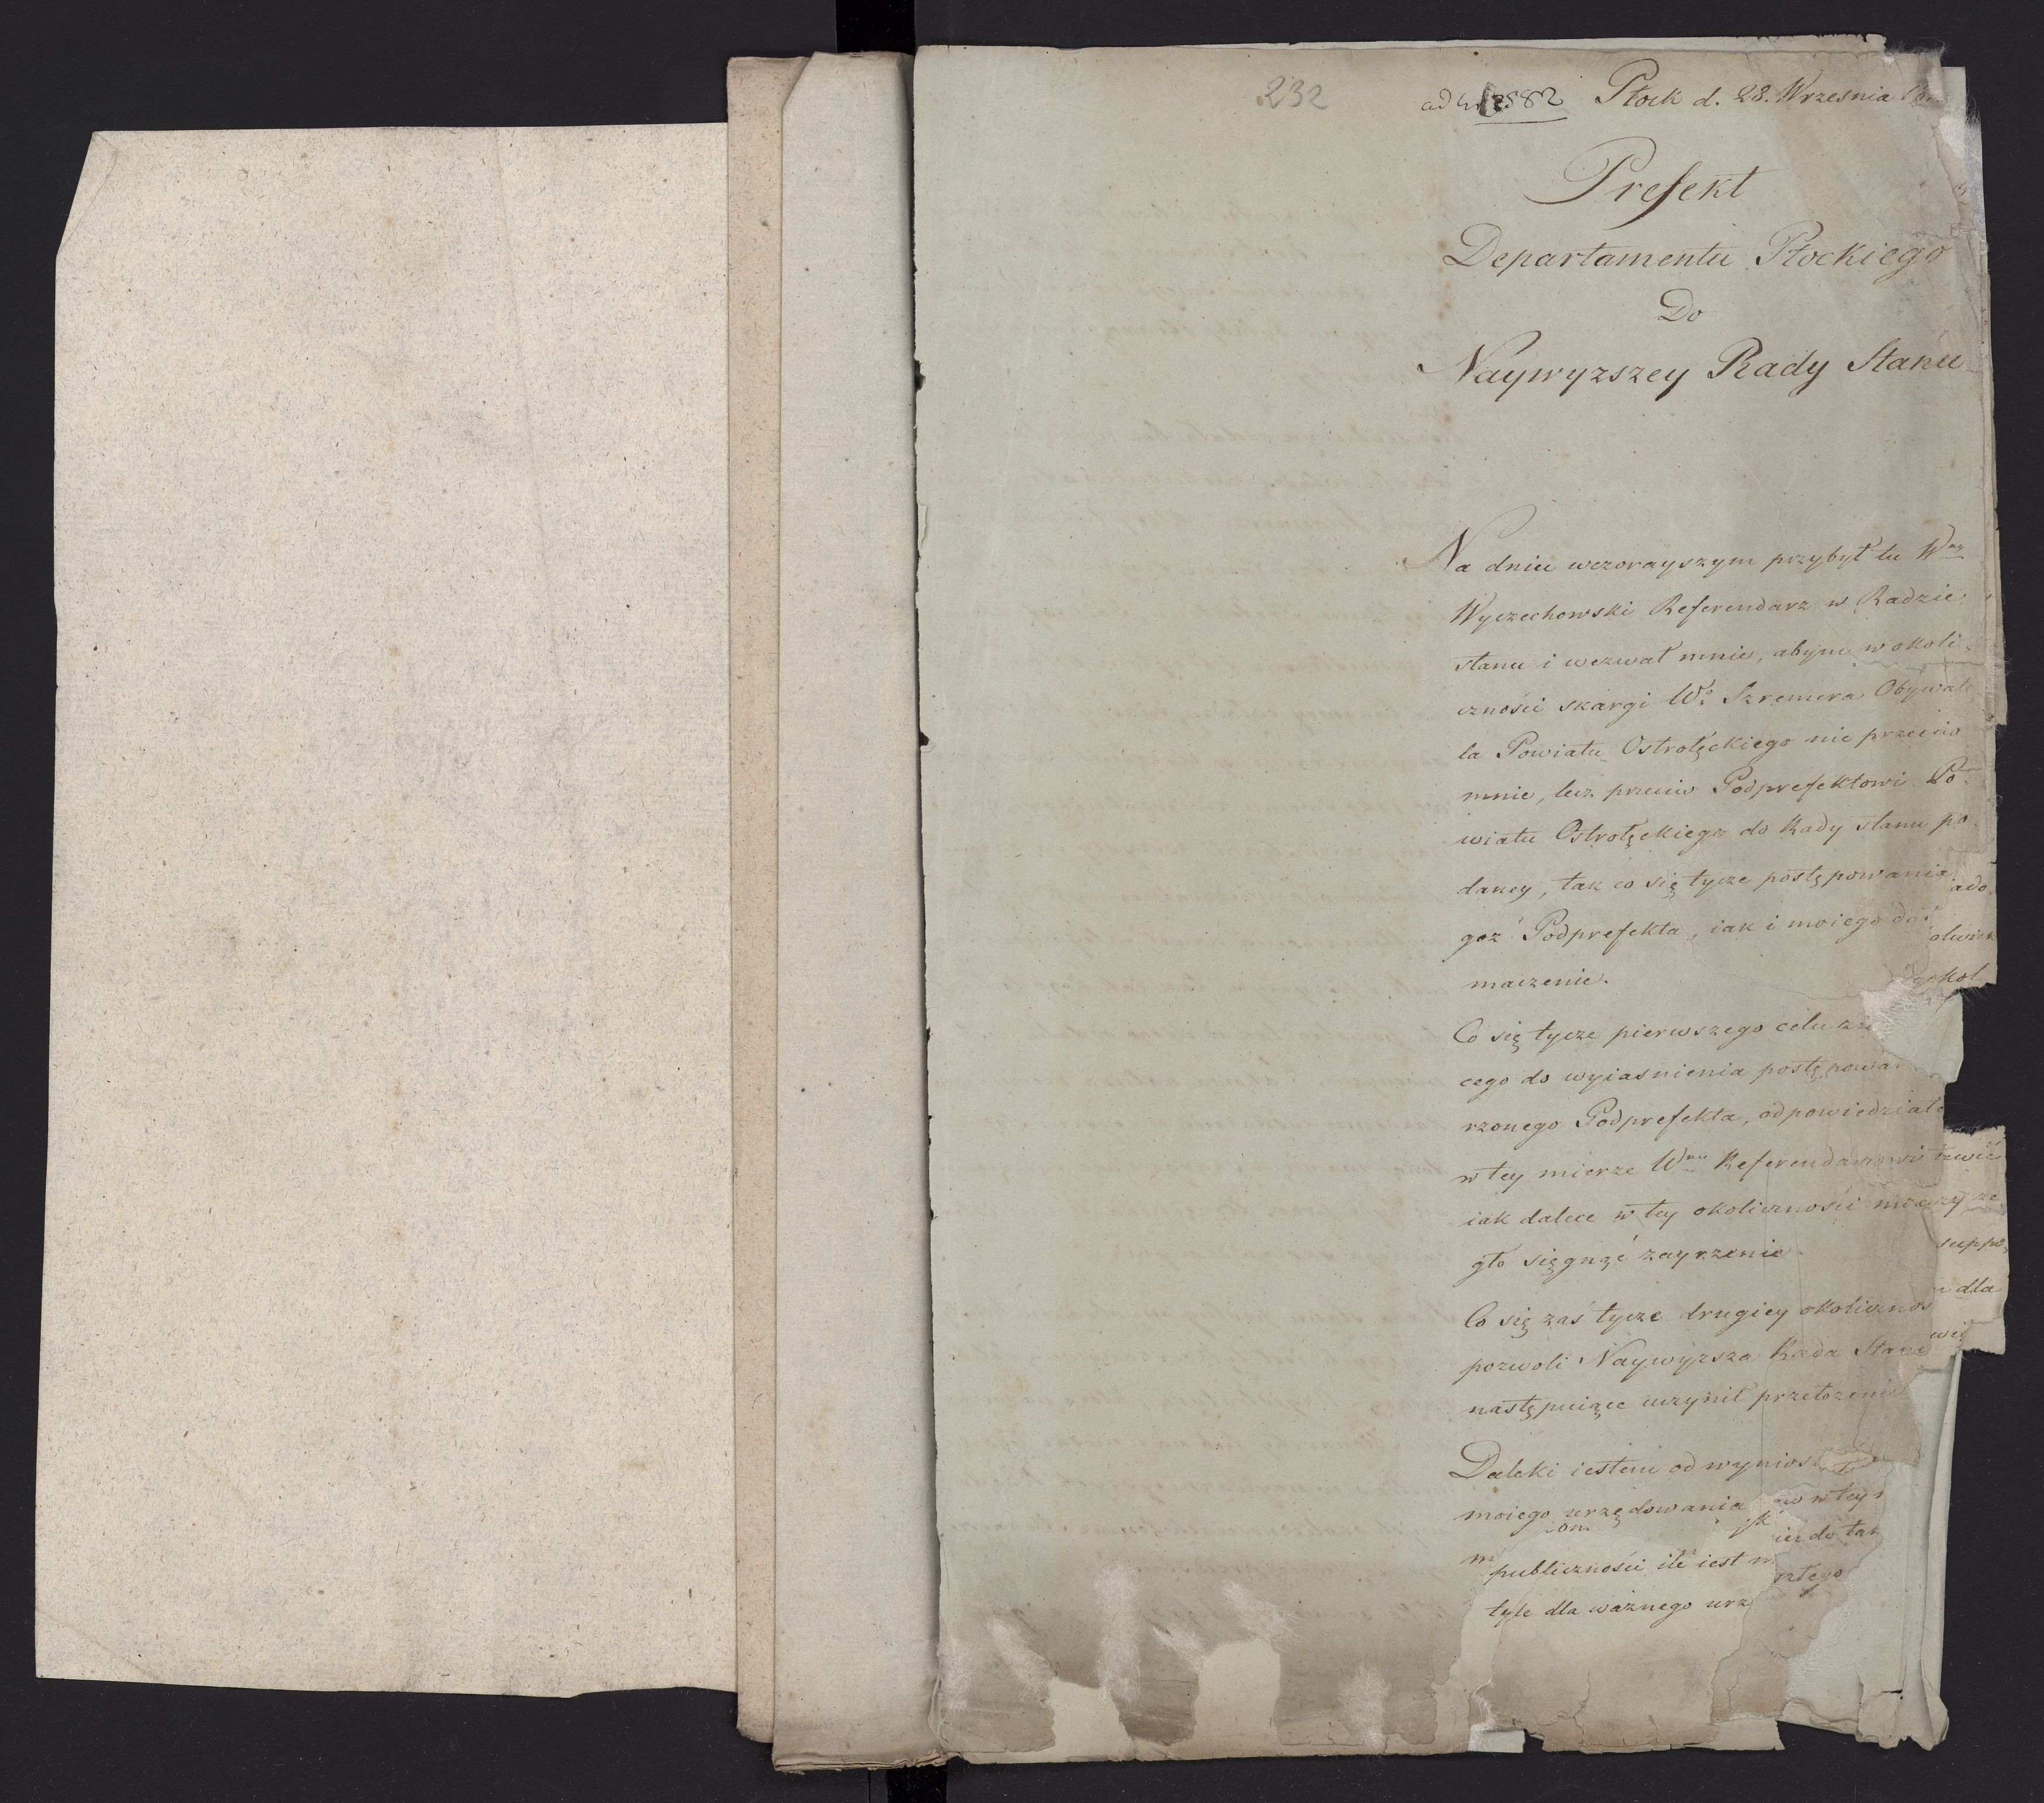 232
ad 2882 Płock d. 28. Wrzesnia
Prefekt
Departamentu Płockiego
Do
Naywyzszey Rady Stanu
Na dniu wczorayszym przybył tu Wny
Wyczechowski Referendarz w Radzie
stanu i wezwał mnie, abym w okoli„
czności skargi Wo Szremera Obywate
la Powiatu Ostrołęckiego nie przeciw
mnie, lecz przeciw Podprefektowi Po„
wiatu Ostrołęckiego do Rady stanu po
daney, tak co się tycze postępowania
goż Podprefekta, iak i moiego dał
maczenie.
Co się tycze pierwszego celu
cego do wyiasnienia postępowa
rzonego Podprefekta, odpowiedziałe
w tey mierze Wmu Referendarzowi
iak dalece w tey okoliczności mo
gło sięgnąć zayrzenie.
Co się zaś tycze drugiey okolicznoś
pozwoli Naywyzsza Rada Stanu
następuiące uczynił przełozenie
Daleki iestem od wynios
moiego urzędowania
publiczności ile iest w
tyle dla ważnego urz
ado
olwiek
okol
suppo„
dla
w tey
do tak